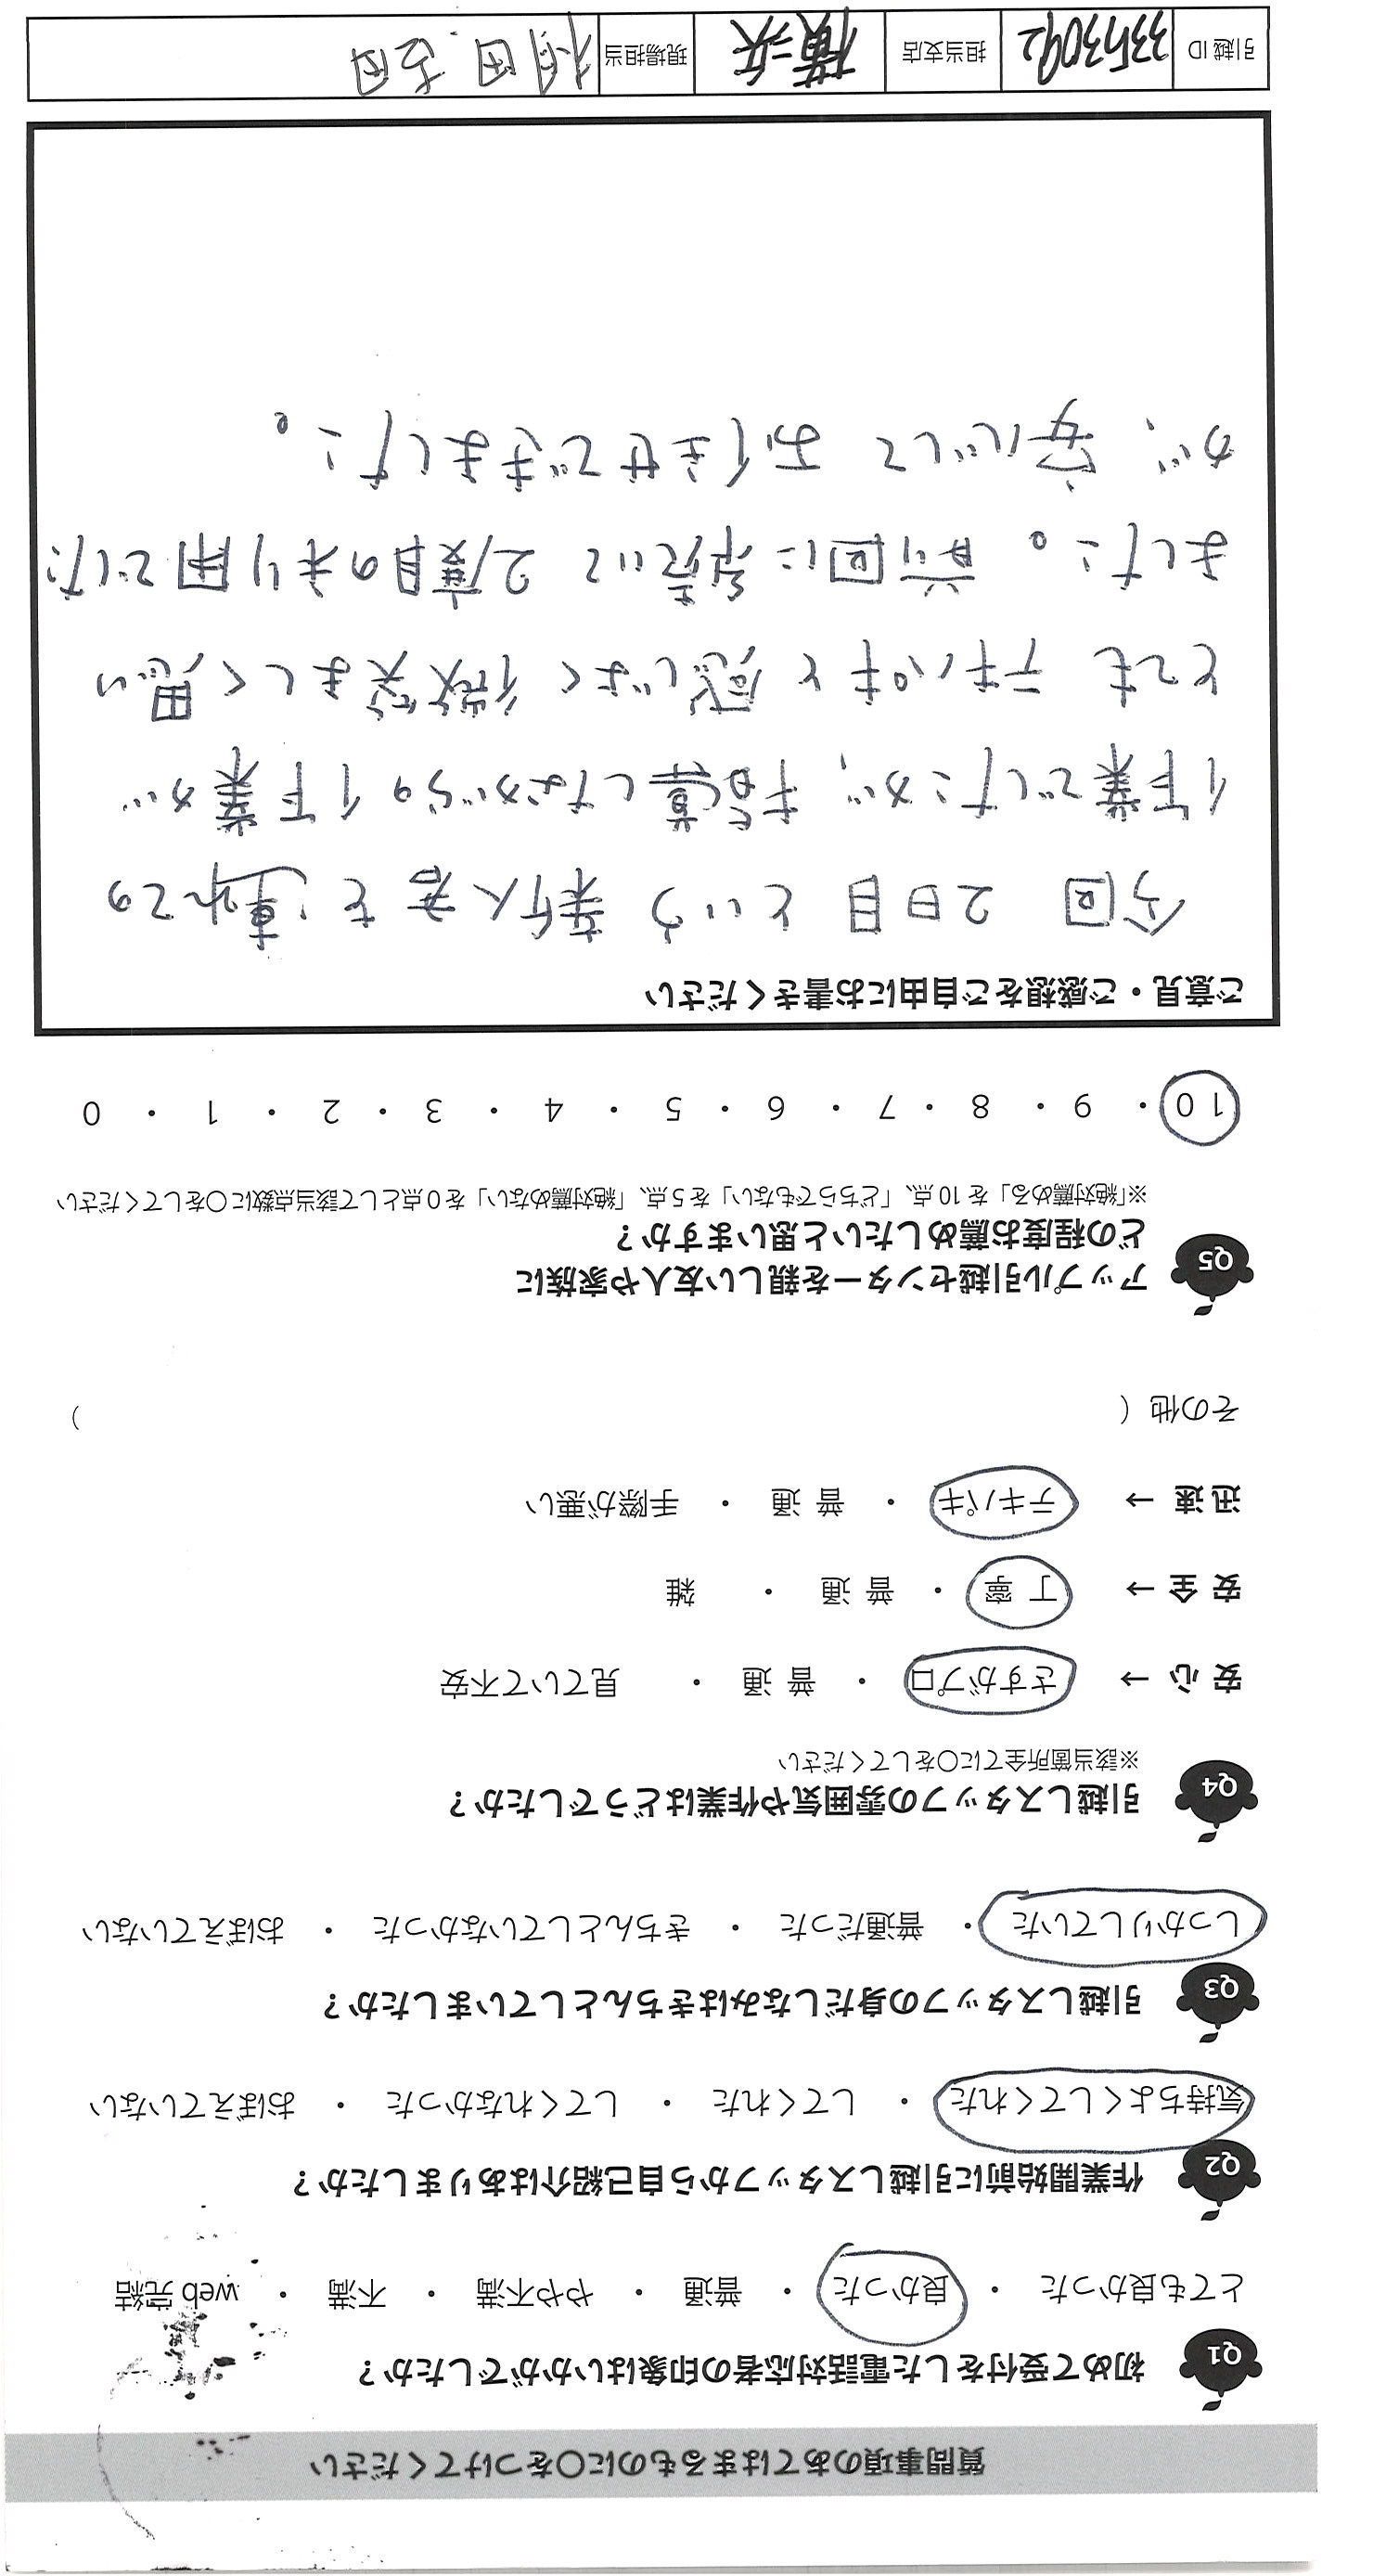 質問事項のあてはまるものに〇をつけてください
Q1 初めて受付をした電話対応者の印象はいかがでしたか？
とても良かった ・ 良かった ・ 普通 ・ やや不満 ・ 不満 ・ web 完結
Q2 作業開始前に引越しスタッフから自己紹介はありましたか？
気持ちよくしてくれた ・ してくれた ・ してくれなかった ・ おぼえていない
Q3 引越しスタッフの身だしなみはきちんとしていましたか？
しっかりしていた ・ 普通だった ・ きちんとしていなかった ・ おぼえていない
Q4 引越しスタッフの雰囲気や作業はどうでしたか？
※該当箇所全てに〇をしてください
安 心 → さすがプロ ・ 普 通 ・ 見ていて不安
安 全 → 丁 寧 ・ 普 通 ・ 雑
迅 速 → テキパキ ・ 普 通 ・ 手際が悪い
その他（ ）
Q5 アップル引越センターを親しい友人や家族に
どの程度お薦めしたいと思いますか？
※「絶対薦める」を 10 点、「どちらでもない」を 5 点、「絶対薦めない」を 0 点として該当点数に〇をしてください
10 ・ 9 ・ 8 ・ 7 ・ 6 ・ 5 ・ 4 ・ 3 ・ 2 ・ 1 ・ 0
ご意見・ご感想をご自由にお書きください
今回 2日目という新人君を連れての
作業でしたが、指導しながらの作業が
とても テキパキと感じよく微笑ましく思い
ました。前回に続いて 2度目の利用でした
が、安心して お任せできました。
引越 ID 3353092 担当支店 横浜 現場担当 柏田 吉田